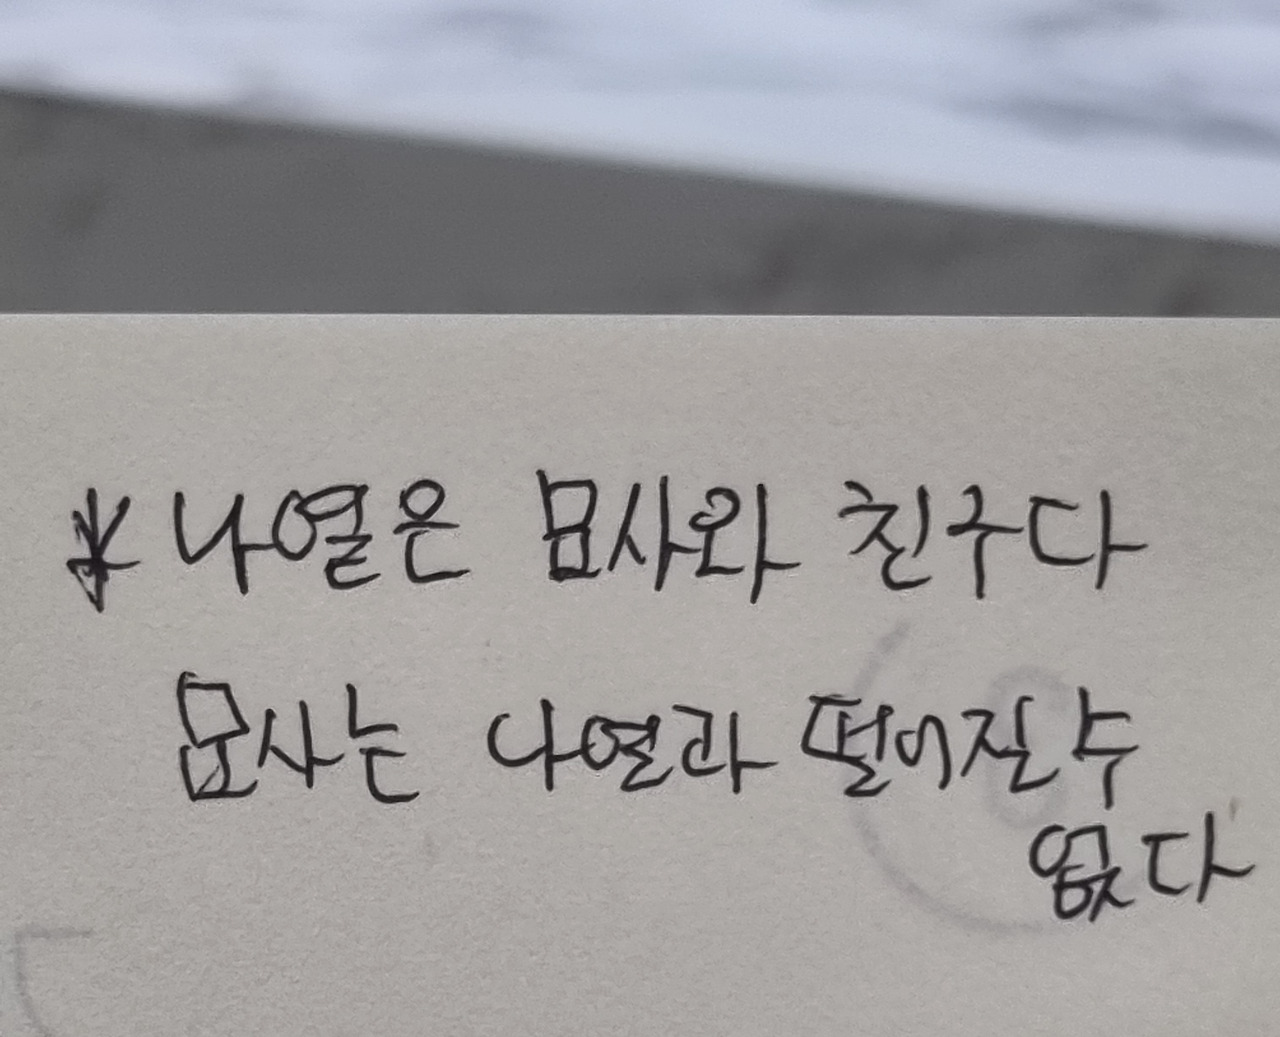 * 나열은 묘사와 친구다
묘사는 나열과 떨어질 수
없다